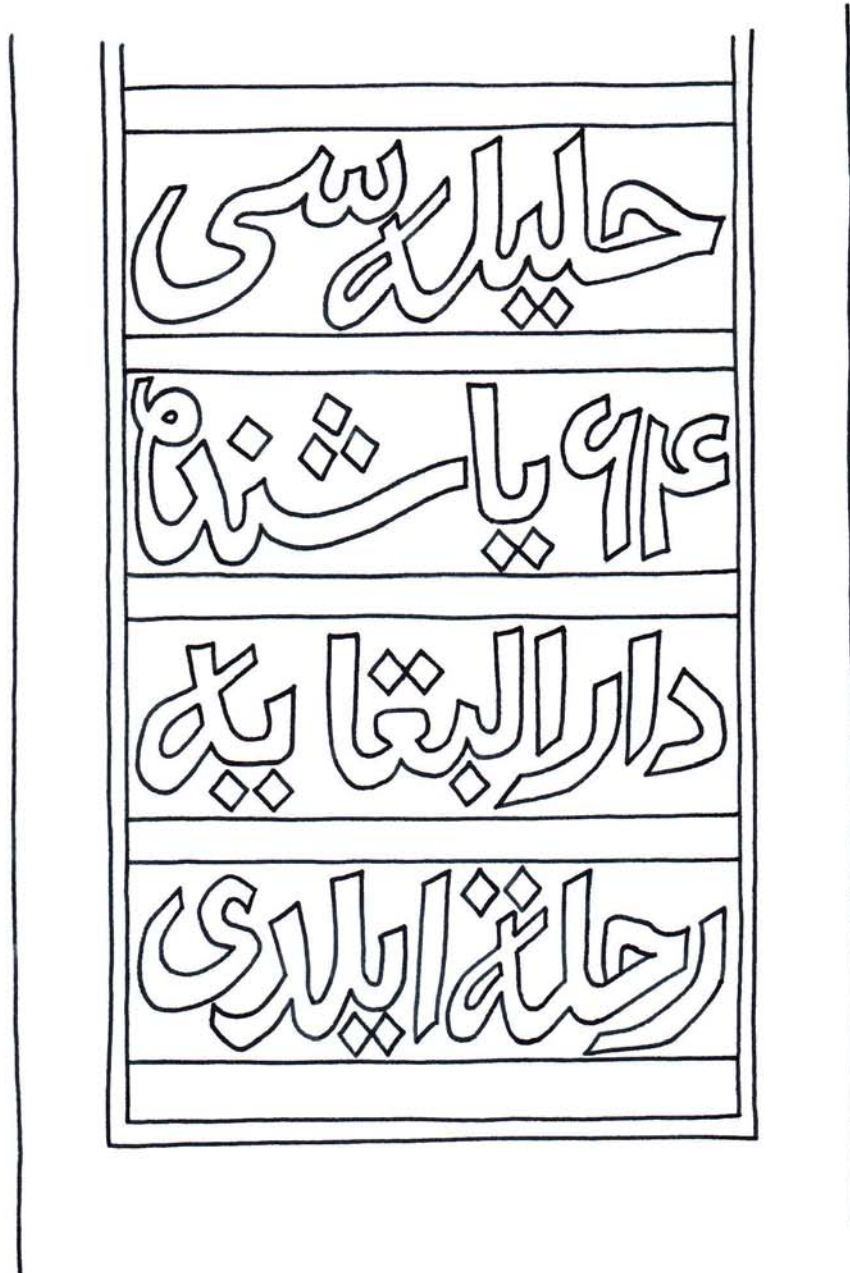 حليله سى
۶۴ ياشنده
دارالبقايه
رحلة ايلدى